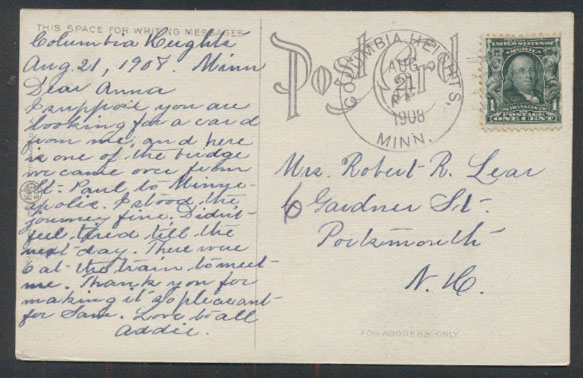 THIS SPACE FOR WRITING MESSAGES
Columbia Heights
Aug 21, 1908. Minn
Dear Anna
I suppose you are
looking for a card
from me, and here
is one of the bridge
we came over from
St. Paul to Minne-
apolis. I stood the
journey fine. Didn't
feel tired till the
next day. There were
6 at the train to meet
me. Thank you for
making it so pleasant
for Sam. Love to all
Addie.
Post Card
COLUMBIA HEIGHTS,
AUG
21
1908
MINN.
UNITED STATES OF AMERICA
1 1
POSTAGE
ONE CENT
Mrs. Robert R. Lear
6 Gardner St.
Portsmouth
N. H.
FOR ADDRESS ONLY